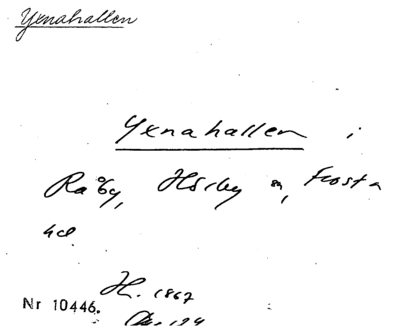 Yxnahallen
Yxnahallen i
Råby, Hörby sn, Frosta
hd
H. 1867
Nr 10446.